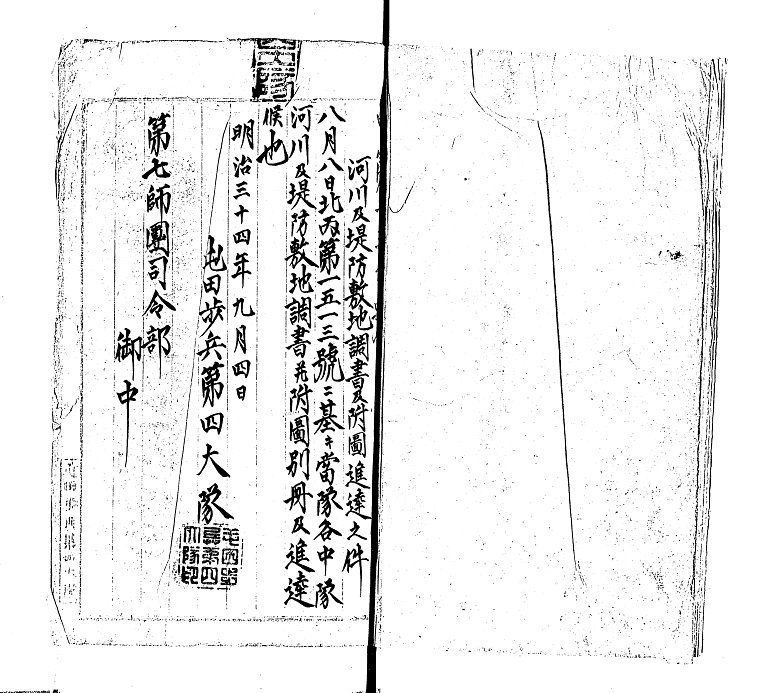 河川及堤防敷地調書及附圖進達之件
八月八日北為第一五一三號ニ基キ當隊各中隊
河川及堤防敷地調書並附圖別册及進達
候也
明治三十四年九月四日
屯田歩兵第四大隊
屯田歩兵第四大隊印
第七師團司令部
御中